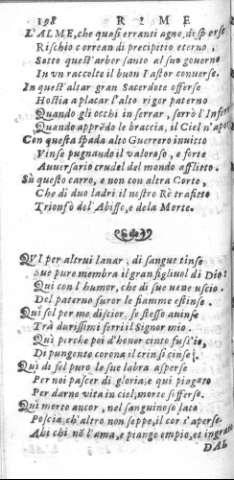 198 RIME
L'ALME, che quasi erranti agne, disperse
Rischio correan di precipitio eterno,
Sotto quest'arbor santo al suo gouerno
In vn raccolte il buon Pastor conuerse.
In quest'altar gran Sacerdote offerse
Hostia a placar l'alto rigor paterno
Quando gli occhi in serrar, serrò l'Infern
Quando apprēdo le braccia, il Ciel n'ap
Con questa spada alto Guerrero inuitto
Vinse pugnando il valoroso, e forte
Auuersario crudel del mondo afflitto.
Sù questo carro, e non con altra Corte,
Che di duo ladri il nostro Rè trafitto
Trionfò del'Abisso, e dela Morte.
QVI per altrui lauar, di sangue tinse
Sue pure membra il gran figliuol di Dio:
Qui con l'humor, che di sue vene vscio
Del paterno furor le fiamme estinse.
Qui sol per me discior, se stesso auinse
Trà durissimi ferri il Signor mio.
Quì perche poi d'honor cinto fuss'io,
Di pungente corona il crin si cinse.
Qui di fel puro le sue labra asperse
Per noi pascer di gloria: e qui piagato
Per darne vita in ciel, morte sofferse.
Qui morto ancor, nel sanguinoso lato
Poscia, ch'altro non seppe, il cor s'aperse.
Ahi chi nō l'ama, e piange empio, et ingrato
DAL